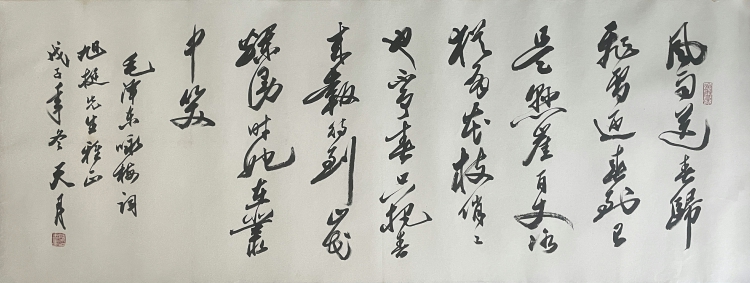 風雨送春歸
飛雪迎春到已
是懸崖百丈冰
猶有花枝俏〻
也不爭春只把春
來報待到山花
爛漫時她在叢
中笑
毛澤東咏梅词
旭挺先生雅正
戊子年冬天月